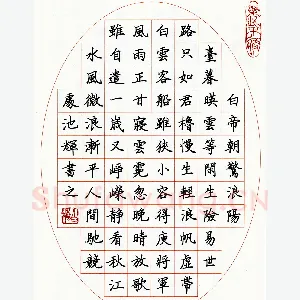 白帝朝驚浪陽
臺暮暎雲等閒生險易世
路只如君櫓慢生輕浪帆虛帶
白雲客船雖狹小容得庚將軍
風雨正寢霓忽晚晴放歌
雖自遣一歲又崢嶸靜看秋江
水風微浪漸平人間馳競
處池輝書之